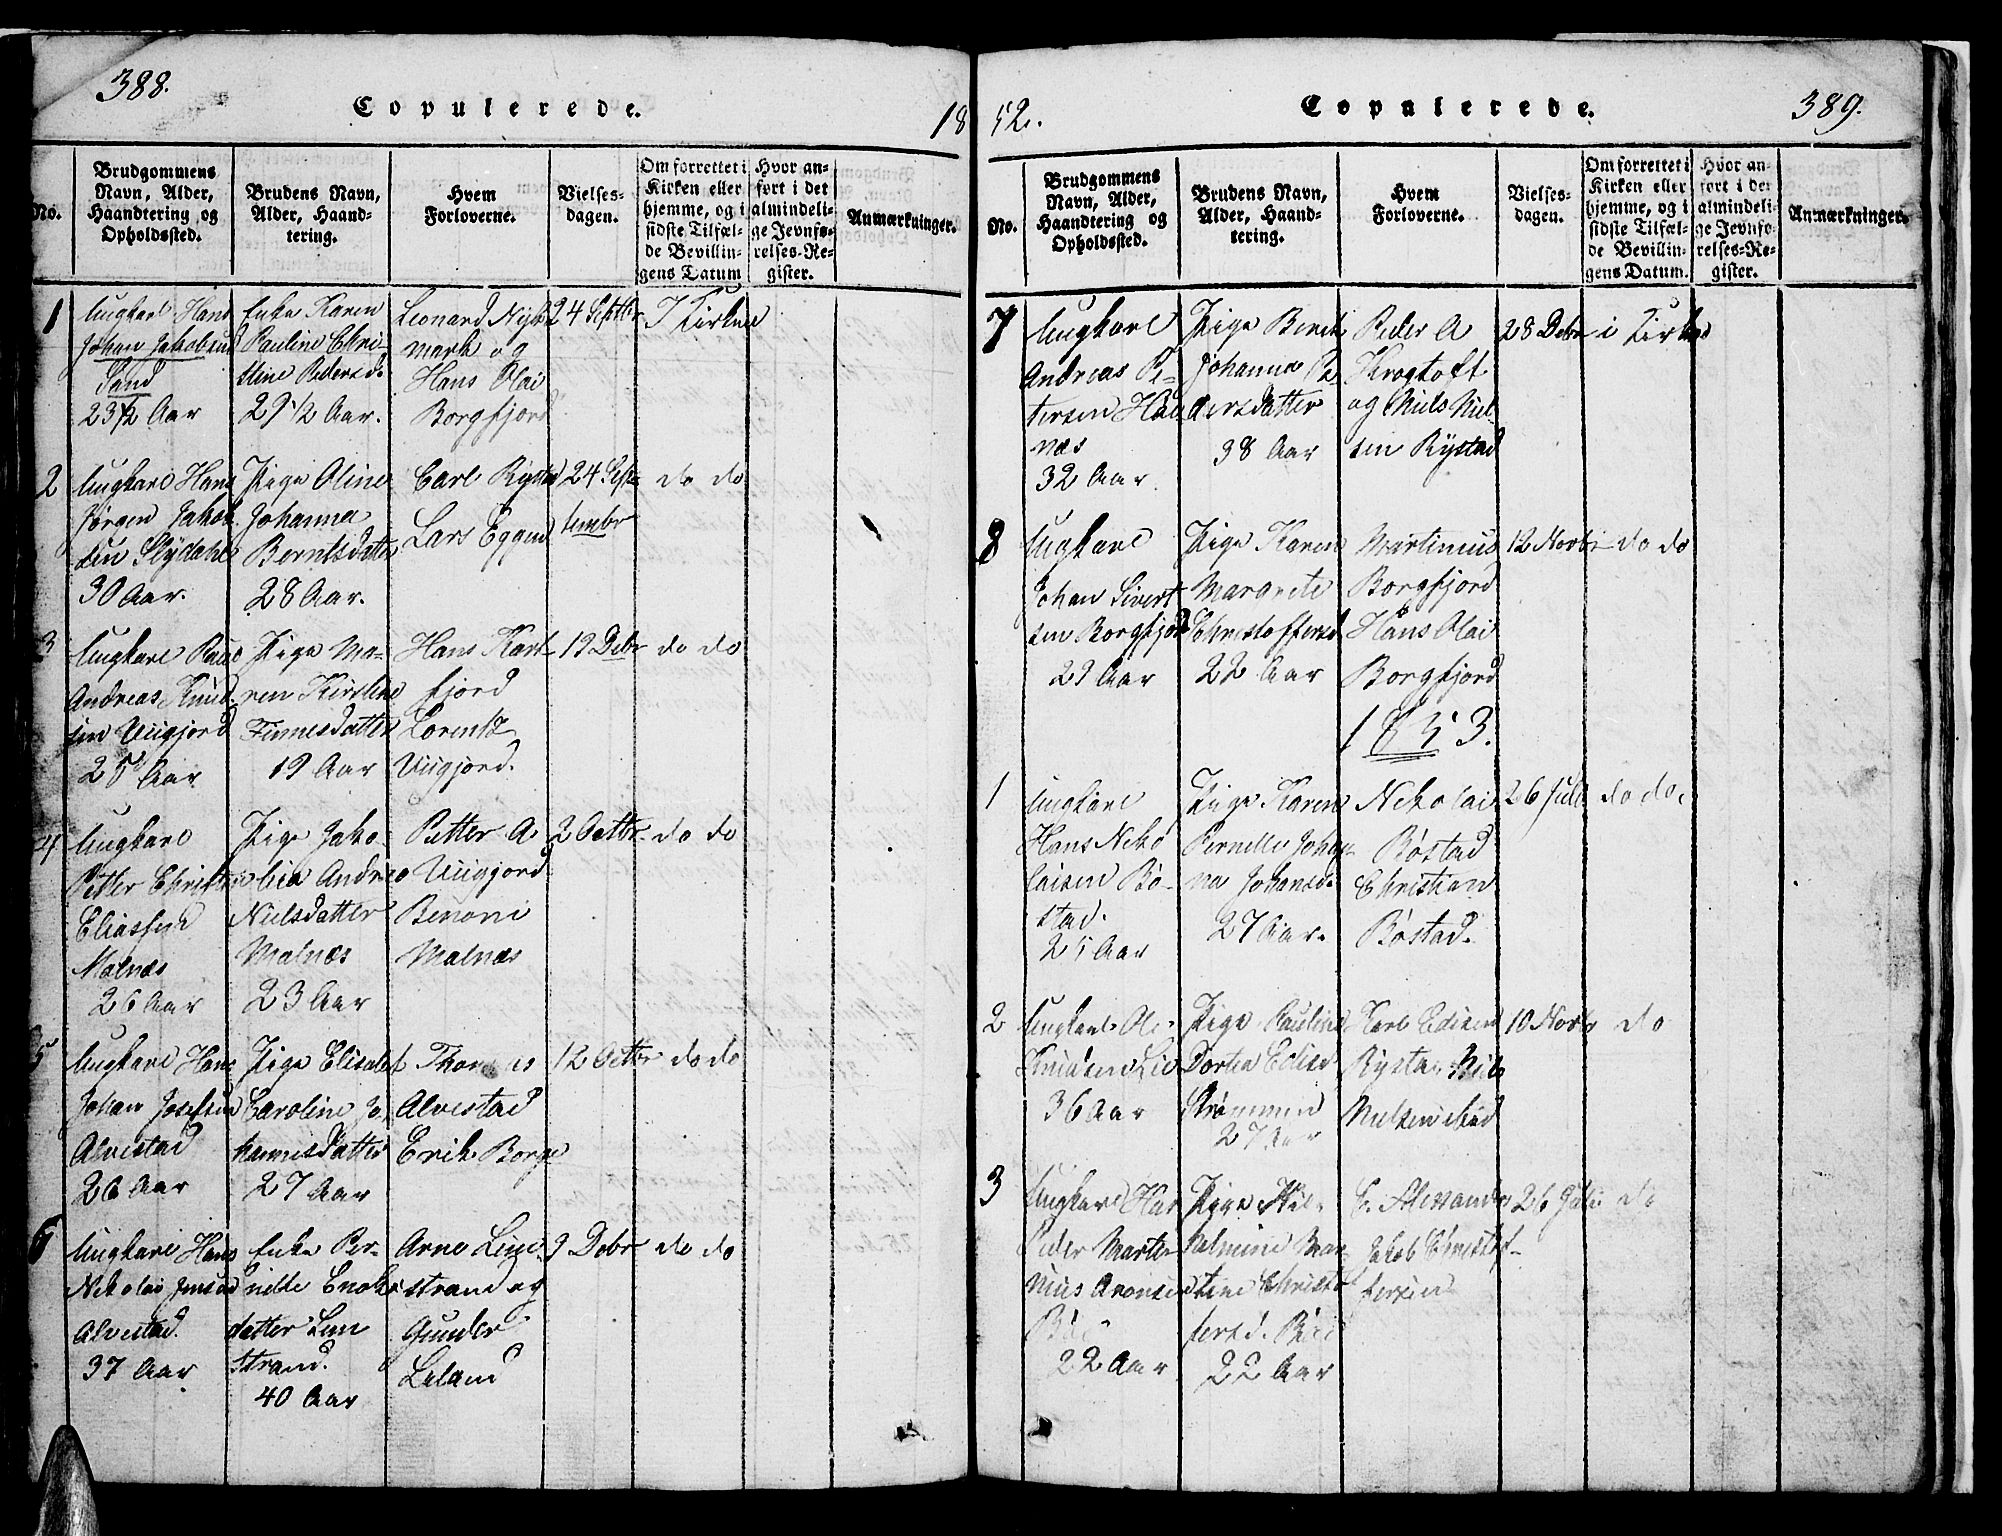 388.
Copulerede.
18
No.
Brudgommens
Navn, Alder,
Haandtering og
Opholdssted.
Brudens Navn,
Alder, Haand-
tering.
Hvem
Forloverne.
Vielses-
dagen.
Om forrettet i
Kirken eller
hjemme, og i
sidste Tilfæl-
de Bevillin-
gens Datum
Hvor an-
ført i det
almindeli-
ge Jevnfø-
relses-Re-
gister.
Anmærkninger.
1
Ungkarl Hans
Johan Jakobsen
Sand
23½ Aar
Enke Karen
Pauline Chri-
stine Pedersd.
29½ Aar.
Leonard Nyk
mark og
Hans Olai
Borgfjord
24 Septbr
I Kirken
2
Ungkarl Hans
Jørgen Jakob
sen Slydahl
30 Aar.
Pige Oline
Johanna
Berntsdatter
28 Aar.
Carl Rystad
Lars Eggen
24 Sep-
tember
do do
3
Ungkarl
Andreas Knud
sen Uugjord
25 Aar
Pige Ma-
ren Kirstine
Finnesdatter
19 Aar
Hans Kart-
fjord
Lorents
Uugjord.
19 Debr
do do
4
Ungkarl
Petter Christi
Eliassen
Malnæs
26 Aar
Pige Jako-
bia Andrea
Nielsdatter
Malnæs
23 Aar
Petter A.
Uugjord
Benoni
Malnæs
2 Octbr.
do do
5
Ungkarl Hans
Johan Josefsen
Alvestad
26 Aar
Pige Elisabet
Caroline Jo
hannesdatter
27 Aar
Thomas
Alvestad
Erik Borge
12 Octbr
do do
6
Ungkarl Hans
Nikolai Jensen
Alvestad.
37 Aar
Enke Per-
nelle Enoks
datter Lin
strand.
40 Aar
Arne Line
strand og
Gunder
Leland
9 Debr
do do
52.
Copulerede.
389.
No.
Brudgommens
Navn, Alder,
Haandtering og
Opholdssted.
Brudens Navn,
Alder, Haand-
tering.
Hvem
Forloverne.
Vielses-
dagen.
Om forrettet i
Kirken eller
hjemme, og i
sidste Tilfæl-
de Bevillin-
gens Datum.
Hvor an-
ført i det
almindeli-
ge Jevnfø-
relses-Re-
gister.
Anmærkninger.
7
Ungkarl
Andreas Pe-
tersen Hau
næs
32 Aar
Pige Berit
Johanna Pe
dersdatter
38 Aar
Peder A
Krogtoft
og Niels Niel
sen Rystad
28 Debr
i Kirken
8
Ungkarl
Johan Sivert
sen Borgfjord
29 Aar
Pige Karen
Margrete
Christoffersd
22 Aar
Martinus
Borgfjord
Hans Olai
Borgfjord
12 Novbr
do do
1853.
1
Ungkarl
Hans Neko
laisen Bø-
stad.
25 Aar
Pige Karen
Pernelle Johan
na Johansd.
27 Aar.
Nekolai
Bøstad
Christian
Bøstad.
26 Juli
do do.
2
Ungkarl Ole
Knudsen Lie
36 Aar
Pige Pauline
Dortea Edisd
Strømmen
27 Aar
Karl Edisen
Rystad Niels
Nielsen
10 Novbr
do
3
Ungkarl Hans
Peder Marti-
nius Aronsen
22 Aar
Pige Wil-
helmine Mar
tine Christo
fersd.
22 Aar
Jakob Christof-
fersen
26 Juli
do